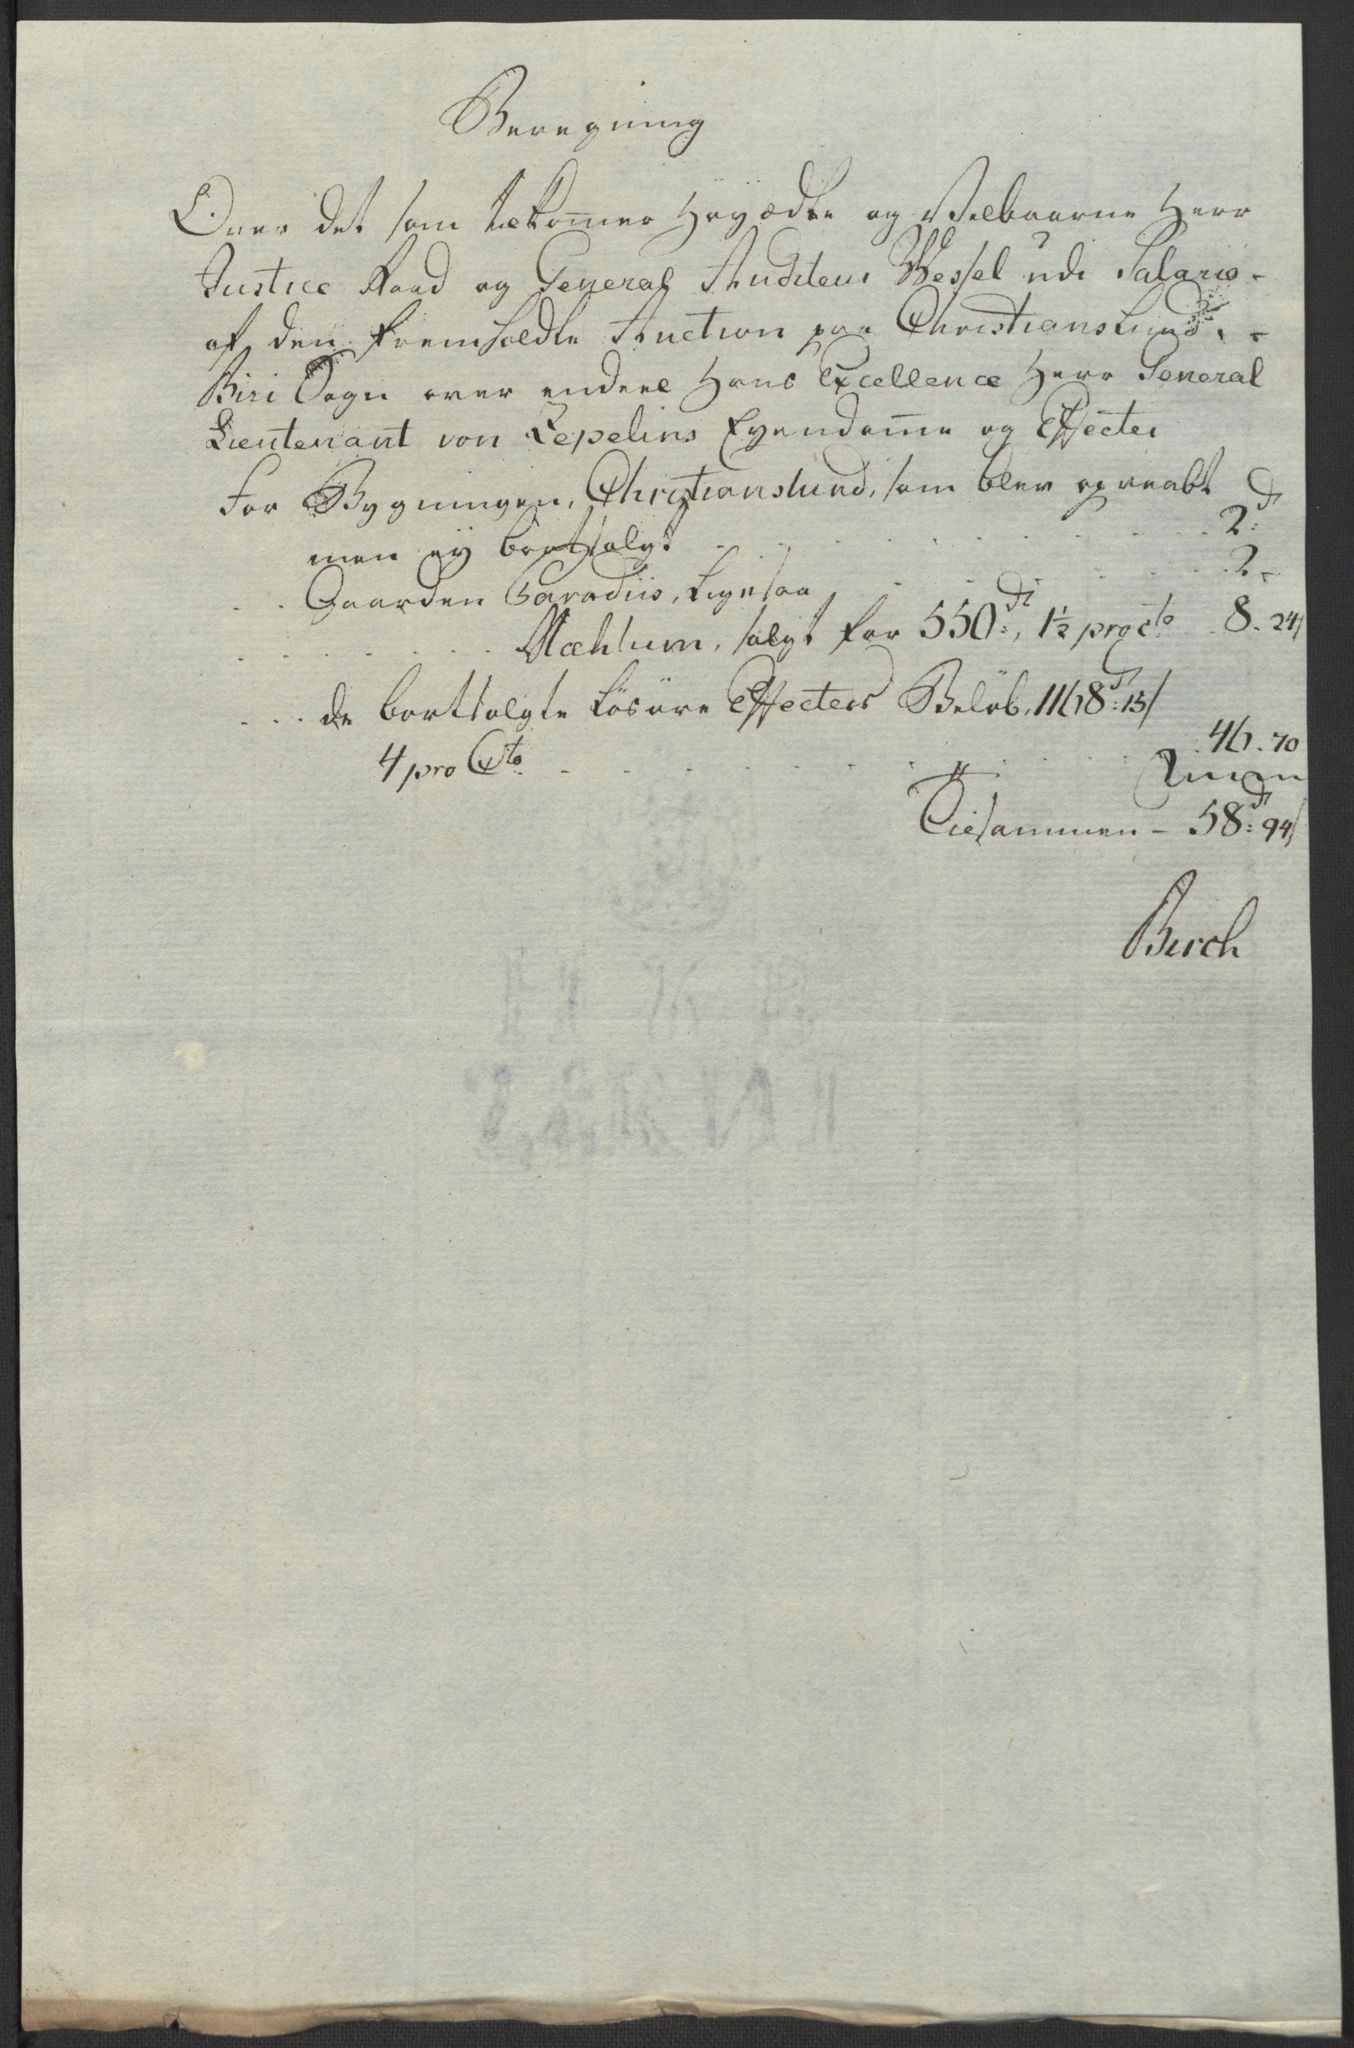 Beregning
Over det som tilkom̅er Høyædle og Velbaarne Herr
Justice Raad og General Auditeur Wessel udi Salario
af den fremholdte Auction paa Christianslund,
Biri Sogn over endeel Hans Excellence Herr General
Lieutenant von Zepelins Eyendom̅e og Effecter
For Bygningen, Christianslund, som blev opraabt
men ey bortsolgt . . . . . . . . 2 rd:
. . Gaarden Paradiis, ligesaa . . . . . . 2 -
. . . . . . Mæhlum, solgt for 550 rd:, 1½ pro cto . 8 - 24 s
. . . de bortsolgte Løsøre Effecters Beløb, 1168 rd: 15 s
4 pro Cto . . . . . . . . 46 - 70
Tilsammen - 58 rd: 94 s
Birch